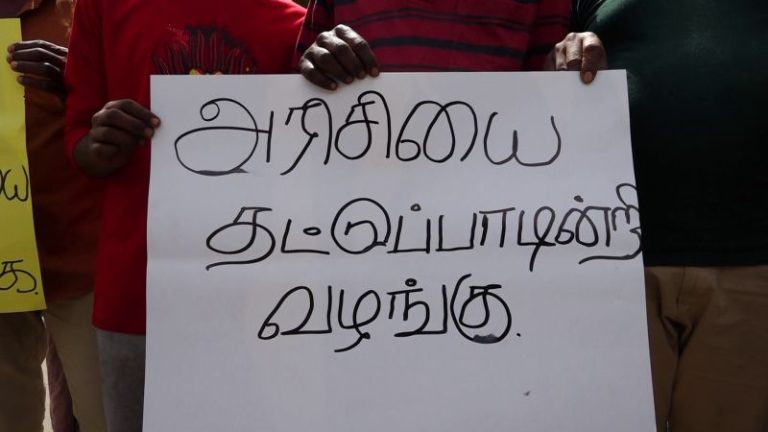 அரிசியை
தட்டுப்பாடின்றி
வழங்கு.